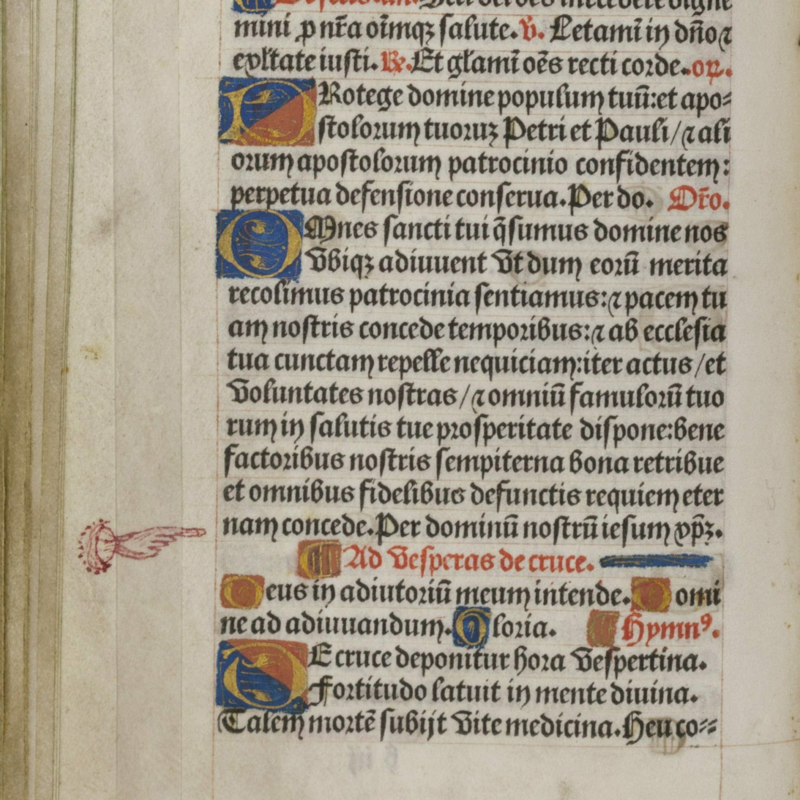 mini ꝓ nr̃a oi᷑mqꝫ salute. ꝟ. Letami᷑ in dño ⁊
exl̃tate iusti. ℞. Et gl̃ami᷑ oẽs recti corde. or̃.
PRotege domine populum tuũ: et apo⸗
stolorum tuoruꝫ Petri et Pauli/ ⁊ ali
orum apostolorum patrocinio confidentem:
perpetua defensione conserua. Per do. Or̃o.
OMnes sancti tui q̃sumus domine nos
vbiqꝫ adiuuent vt dum eorũ merita
recolimus patrocinia sentiamus: ⁊ pacem tu
am nostris concede temporibus: ⁊ ab ecclesia
tua cunctam repelle nequiciam: iter actus/ et
voluntates nostras/ ⁊ omniũ famulorũ tuo
rum in salutis tue prosperitate dispone: bene
factoribus nostris sempiterna bona retribue
et omnibus fidelibus defunctis requiem eter
nam concede. Per dominũ nostrũ iesum xp̃ꝫ.
¶ Ad vesperas de cruce.
Deus in adiutoriũ meum intende. Domi
ne ad adiuuandum. Gloria. Hymnꝰ.
DE cruce deponitur hora vespertina.
Fortitudo latuit in mente diuina.
Talem mortẽ subijt vite medicina. Heu co⸗